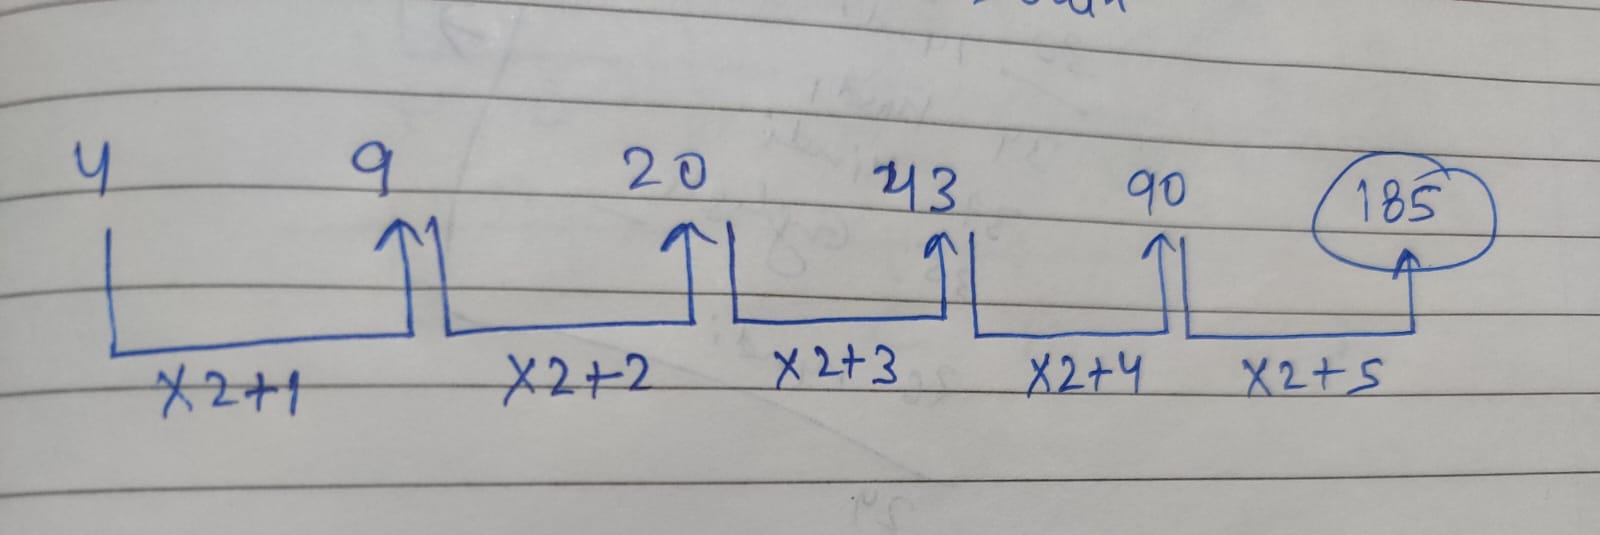 4 9 20 43 90 185
×2+1 ×2+2 ×2+3 ×2+4 ×2+5